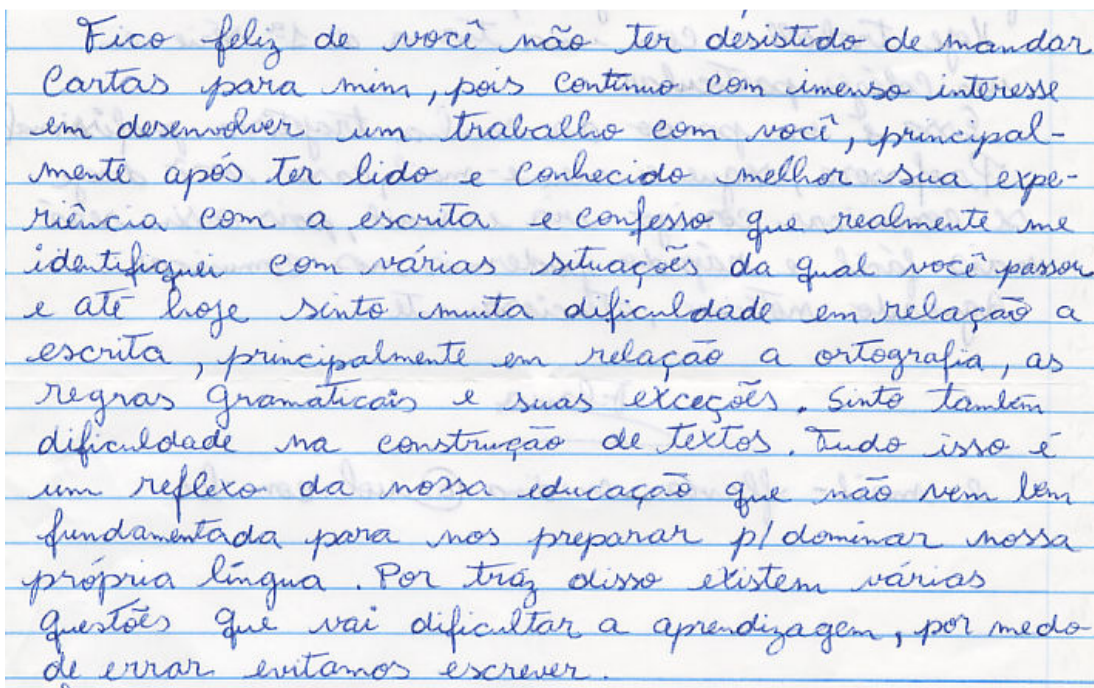 Fico feliz de você não ter desistido de mandar
Cartas para mim, pois continuo com imenso interesse
em desenvolver um trabalho com você, principal-
mente após ter lido e conhecido melhor sua expe-
riência com a escrita e confesso que realmente me
identifiquei com várias situações da qual você passou
e até hoje sinto muita dificuldade em relação a
escrita, principalmente em relação a ortografia, as
regras gramaticais e suas exceções. Sinto também
dificuldade na construção de textos. Tudo isso é
um reflexo da nossa educação que não vem bem
fundamentada para nos preparar p/ dominar nossa
própria língua. Por tráz disso existem várias
questões que vai dificultar a aprendizagem, por medo
de errar evitamos escrever.